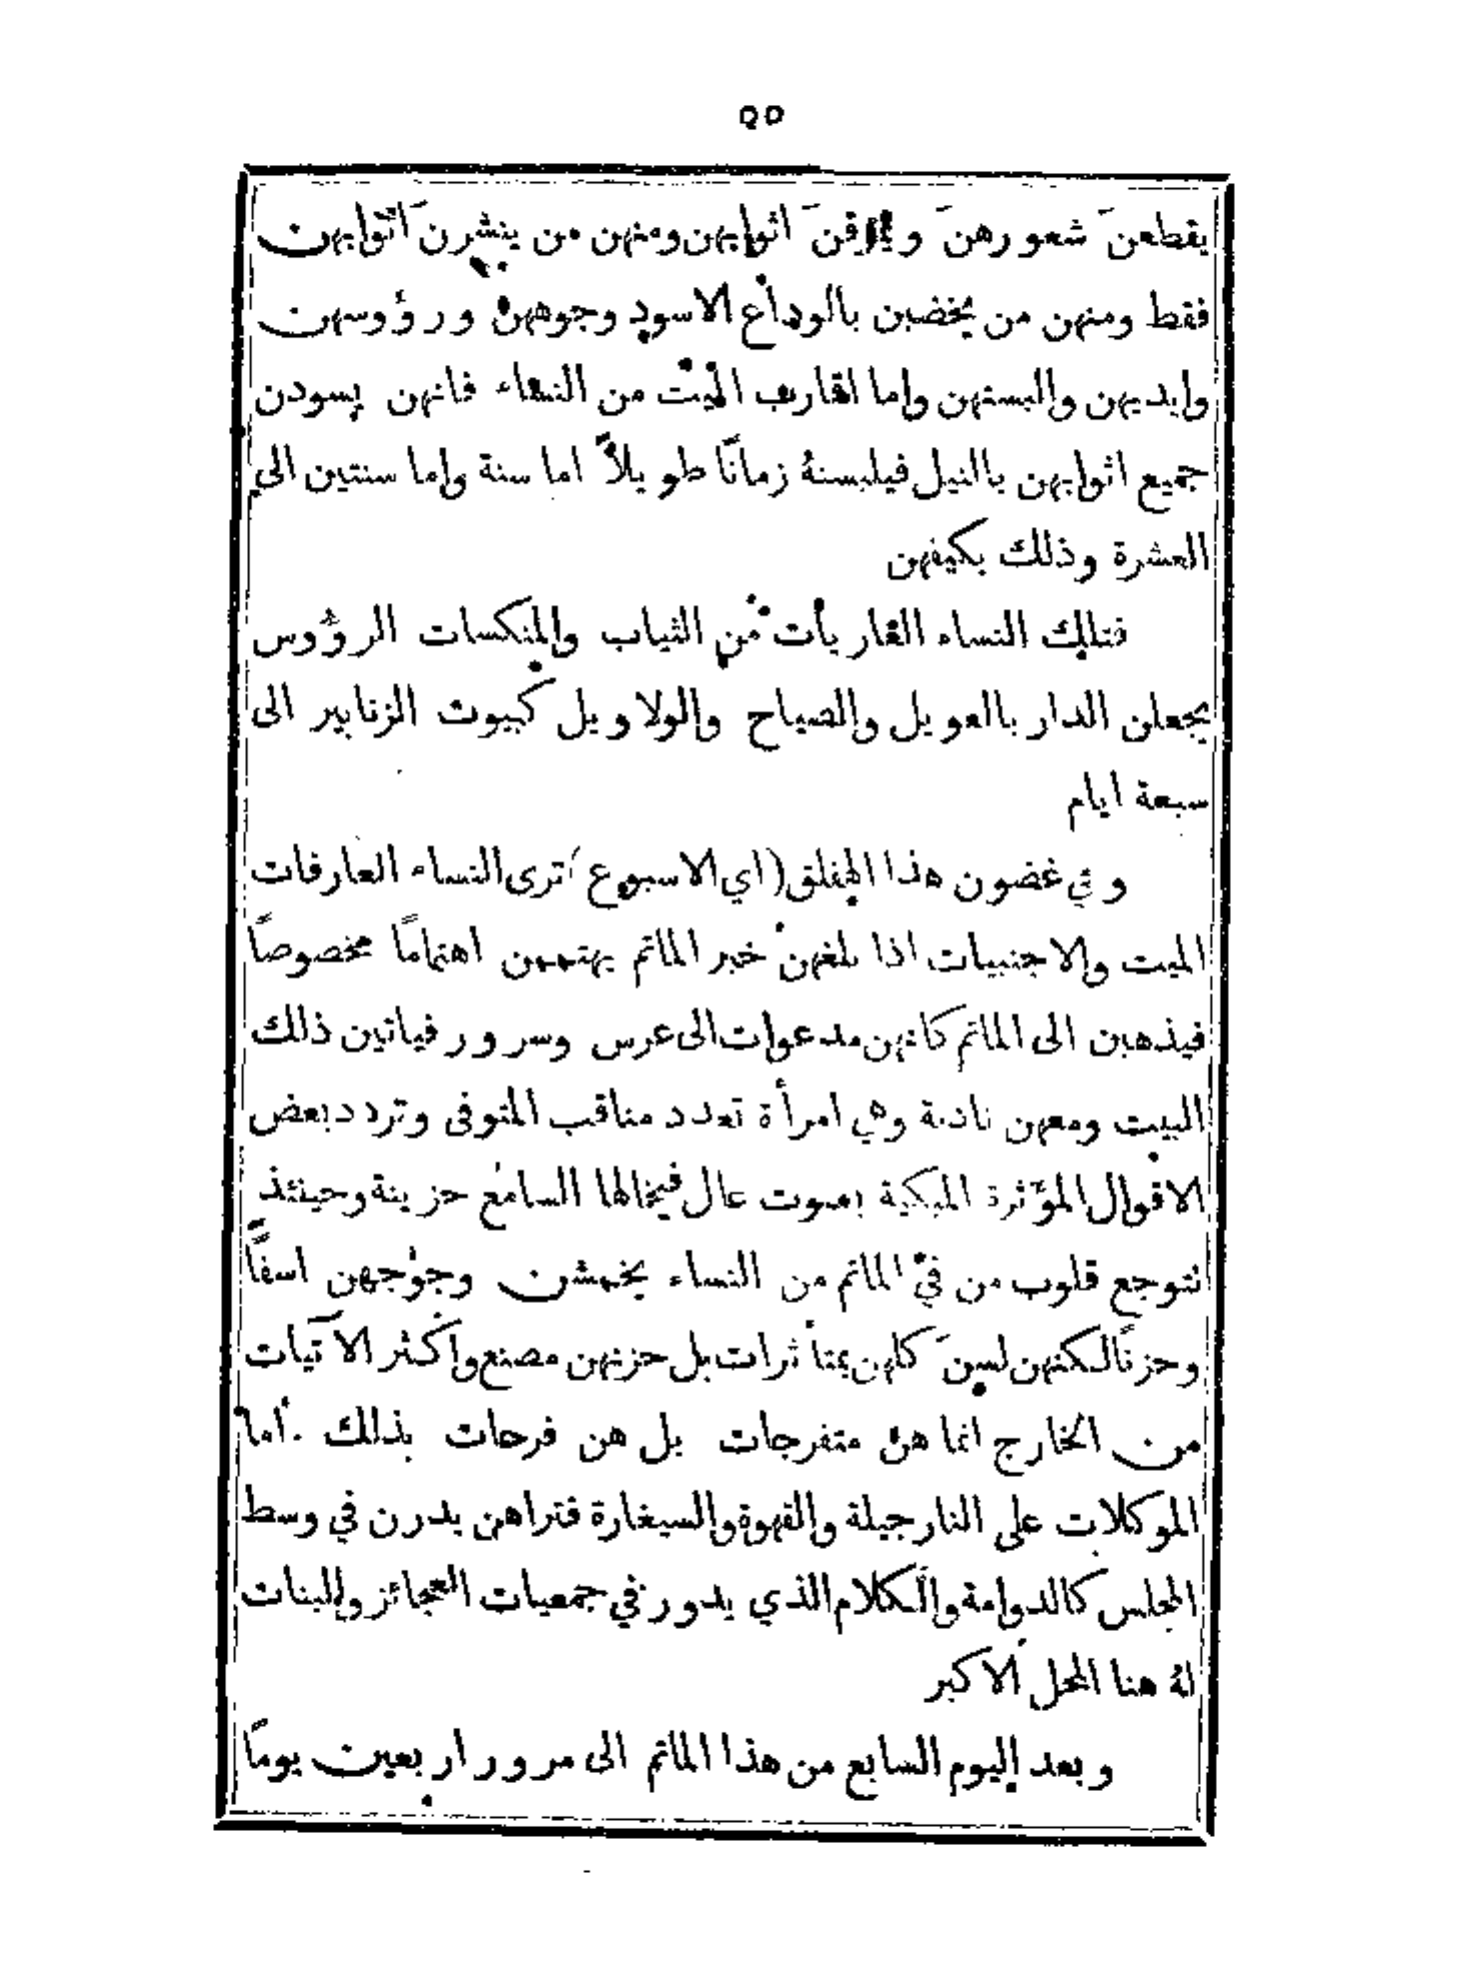 ٩٥
يقطعنَ شعورهنَ ويمزقنَ اثوابهن ومنهن من ينشرنَ اثوابهن
فقط ومنهن من يخضبن بالوداع الاسود وجوههن ورؤوسهن
وايديهن والبستهن واما اقارب الميت من النساء فانهن يسودن
جميع اثوابهن بالنيل فيلبسنهُ زمانًا طويلاً اما سنة واما سنتين الى
العشرة وذلك بكيفهن
فتلك النساء العاريات من الثياب والمنكسات الرؤوس
يجعلن الدار بالعويل والصياح والولاويل كبيوت الزنابير الى
سبعة ايام
وفي غضون هذا القلق (اي الاسبوع) ترى النساء العارفات
الميت والاجنبيات اذا بلغهن خبر الماتم يهتممن اهتمامًا مخصوصًا
فيذهبن الى الماتم كانهن مدعوات الى عرس وسرور فياتين ذلك
البيت ومعهن نادبة وهي امرأة تعدد مناقب المتوفى وتردد بعض
الاقوال المؤثرة المبكية بصوت عال فيخالها السامع حزينة وحينئذ
تتوجع قلوب من في الماتم من النساء يخمشن وجوجهن اسفًا
وحزنًا لكنهن لسنَ كلهن بمتأثرات بل حزنهن مصنع واكثر الآتيات
من الخارج انما هن متفرجات بل هن فرحات بذلك . أما
الموكلات على النارجيلة والقهوة والسيغارة فتراهن يدرن في وسط
المجلس كالدوامة والكلام الذي يدور في جمعيات العجائز والبنات
لهُ هنا المحل الاكبر
وبعد اليوم السابع من هذا الماتم الى مرور اربعين يومًا